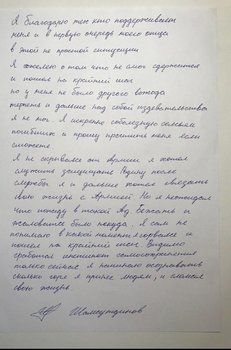 Я благодарю тех кто поддерживает
меня и в первую очередь моего отца
в этой не простой ситуации
Я жалею о том что не смог сдержаться
и пошел на крайний шаг
но у меня не было другого выхода
терпеть и дальше над собой издевательства
я не мог. Я искренне соболезную семьям
погибших и прошу простить меня если
сможете.
Я не скрывался от Армии я хотел
служить защищать Родину после
службы я и дальше хотел связать
свою жизнь с Армией Но я не ожидал
что попаду в такой Ад Бежать и
жаловаться было некуда, Я сам не
понимаю в какой момент я сорвался и
пошел на крайний шаг Видимо
сработал инстинкт самосохранения
только сейчас я начинаю осознавать
сколько горя я принес людям, и сломал
свою жизнь
Шамсутдинов